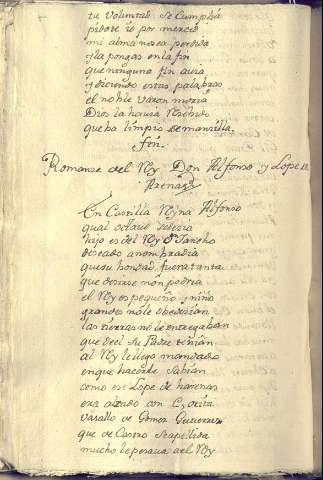 tu voluntad se cumpla
pidote io por merced
mi alma no sea perdida
y la pongas en la fin
que ninguna fin auia
y diciendo estas palabras
el noble varon moria
Dios la hauia
que ba limpia de mancilla.
Fin.
Romance del Rey Don Alfonso y Lope de
Arenas
En Castilla Reyna Alfonso
qual octauo
hijo es del Rey Dn. Sancho
deseado a nombradia
que su bondad fuera tanta
que decirse non podria
el Rey es pequeño y niño
grandes no le obedecian
las tierras no le entregaban
que de el su Padre tenian
al Rey le luego mandado
en que hacerle sabian
como ese Lope de harenas
era alzado con
vasallo de Gomez Gutierrez
que de Castro se apellida
mucho le pesaua al Rey